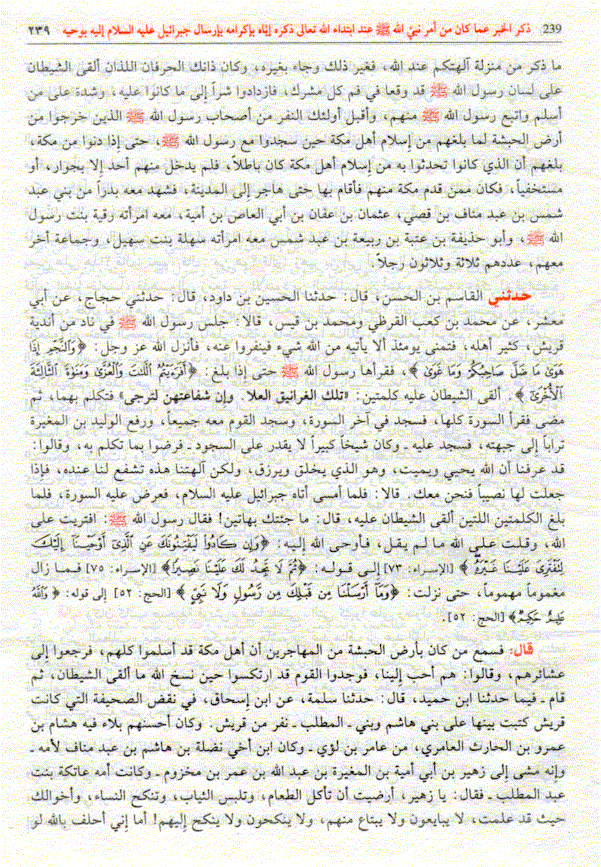 239 ذكر الخبر عما كان من أمر نبيّ الله ﷺ عند ابتداء الله تعالى ذكره إيّاه بإكرامه بإرسال جبرائيل عليه السلام إليه بوحيه ٢٣٩
ما ذكر من منزلة آلهتكم عند الله، فغير ذلك وجاء بغيره، وكان ذانك الحرفان اللذان ألقى الشيطان
على لسان رسول الله ﷺ قد وقعا في فم كل مشرك، فازدادوا شراً إلى ما كانوا عليه، وشدة على من
أسلم واتبع رسول الله ﷺ منهم، وأقبل أولئك النفر من أصحاب رسول الله ﷺ الذين خرجوا من
أرض الحبشة لما بلغهم من إسلام أهل مكة حين سجدوا مع رسول الله ﷺ، حتى إذا دنوا من مكة،
بلغهم أن الذي كانوا تحدثوا به من إسلام أهل مكة كان باطلاً، فلم يدخل منهم أحد إلا بجوار، أو
مستخفياً، فكان ممن قدم مكة منهم فأقام بها حتى هاجر إلى المدينة، فشهد معه بدراً من بني عبد
شمس بن عبد مناف بن قصي، عثمان بن عفان بن أبي العاص بن أمية، معه امرأته رقية بنت رسول
الله ﷺ، وأبو حذيفة بن عتبة بن ربيعة بن عبد شمس معه امرأته سهلة بنت سهيل، وجماعة أخر
معهم، عددهم ثلاثة وثلاثون رجلاً.
حدثني القاسم بن الحسن، قال: حدثنا الحسين بن داود، قال: حدثني حجاج، عن أبي
معشر، عن محمد بن كعب القرظي ومحمد بن قيس، قالا: جلس رسول الله ﷺ في ناد من أندية
قريش، كثير أهله، فتمنى يومئذ ألا يأتيه من الله شيء فينفروا عنه، فأنزل الله عز وجل: ﴿وَالنَّجْمِ إِذَا
هَوَىٰ مَا ضَلَّ صَاحِبُكُمْ وَمَا غَوَىٰ﴾، فقرأها رسول الله ﷺ حتى إذا بلغ: ﴿أَفَرَءَيْتُمُ اللَّاتَ وَالْعُزَّىٰ وَمَنَوٰةَ الثَّالِثَةَ
الْأُخْرَىٰ﴾. ألقى الشيطان عليه كلمتين: «تلك الغرانيق العلا. وإن شفاعتهن لترجى» فتكلم بهما، ثم
مضى فقرأ السورة كلها، فسجد في آخر السورة، وسجد القوم معه جميعاً، ورفع الوليد بن المغيرة
تراباً إلى جبهته، فسجد عليه ـ وكان شيخاً كبيراً لا يقدر على السجود ـ فرضوا بما تكلم به، وقالوا:
قد عرفنا أن الله يحيي ويميت، وهو الذي يخلق ويرزق، ولكن آلهتنا هذه تشفع لنا عنده، فإذا
جعلت لها نصيباً فنحن معك. قالا: فلما أمسى أتاه جبرائيل عليه السلام، فعرض عليه السورة، فلما
بلغ الكلمتين اللتين ألقى الشيطان عليه، قال: ما جئتك بهاتين! فقال رسول الله ﷺ: افتريت على
الله، وقلت على الله ما لم يقل، فأوحى الله إليه: ﴿وَإِن كَادُوا لَيَفْتِنُونَكَ عَنِ الَّذِي أَوْحَيْنَا إِلَيْكَ
لِتَفْتَرِيَ عَلَيْنَا غَيْرَهُ﴾ [الإسراء: ٧٣] إلى قوله: ﴿ثُمَّ لَا تَجِدُ لَكَ عَلَيْنَا نَصِيرًا﴾ [الإسراء: ٧٥] فما زال
مغموماً مهموماً، حتى نزلت: ﴿وَمَا أَرْسَلْنَا مِن قَبْلِكَ مِن رَّسُولٍ وَلَا نَبِيٍّ﴾ [الحج: ٥٢] إلى قوله: ﴿وَاللَّهُ
عَلِيمٌ حَكِيمٌ﴾ [الحج: ٥٢].
قال: فسمع من كان بأرض الحبشة من المهاجرين أن أهل مكة قد أسلموا كلهم، فرجعوا إلى
عشائرهم، وقالوا: هم أحب إلينا، فوجدوا القوم قد ارتكسوا حين نسخ الله ما ألقى الشيطان، ثم
قام ـ فيما حدثنا ابن حميد، قال: حدثنا سلمة، عن ابن إسحاق، في نقض الصحيفة التي كانت
قريش كتبت بينها على بني هاشم وبني ـ المطلب ـ نفر من قريش. وكان أحسنهم بلاء فيه هشام بن
عمرو بن الحارث العامري، من عامر بن لؤي ـ وكان ابن أخي نضلة بن هاشم بن عبد مناف لأمه ـ
وإنه مشى إلى زهير بن أبي أمية بن المغيرة بن عبد الله بن عمر بن مخزوم ـ وكانت أمه عاتكة بنت
عبد المطلب ـ فقال: يا زهير، أرضيت أن تأكل الطعام، وتلبس الثياب، وتنكح النساء، وأخوالك
حيث قد علمت، لا يبايعون ولا يبتاع منهم، ولا ينكحون ولا ينكح إليهم! أما إني أحلف بالله لو